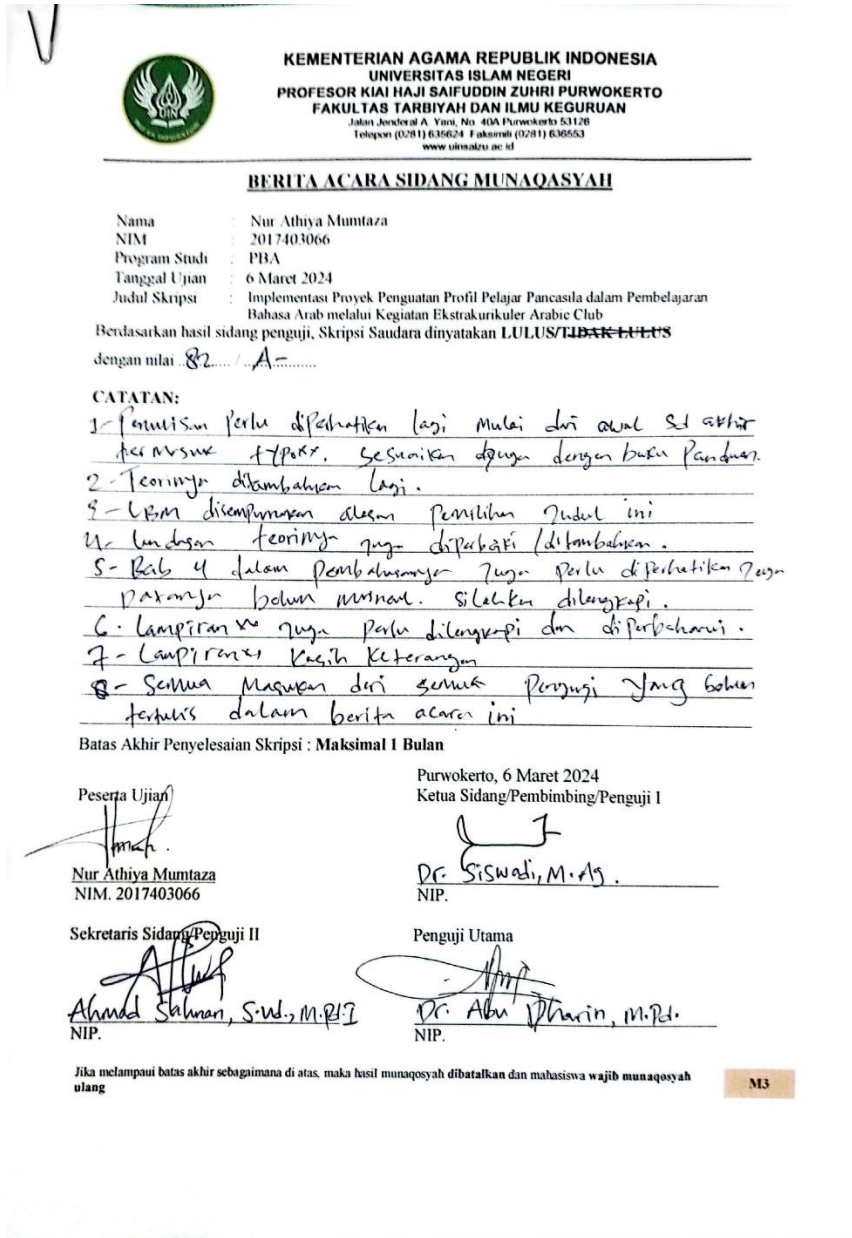 KEMENTERIAN AGAMA REPUBLIK INDONESIA
UNIVERSITAS ISLAM NEGERI
PROFESOR KIAI HAJI SAIFUDDIN ZUHRI PURWOKERTO
FAKULTAS TARBIYAH DAN ILMU KEGURUAN
Jalan Jenderal A. Yani, No. 40A Purwokerto 53126
Telepon (0281) 635624 Faksimili (0281) 636553
www.uinsaizu.ac.id
UIN
BERITA ACARA SIDANG MUNAQASYAH
Nama : Nur Athiya Mumtaza
NIM : 2017403066
Program Studi : PBA
Tanggal Ujian : 6 Maret 2024
Judul Skripsi : Implementasi Proyek Penguatan Profil Pelajar Pancasila dalam Pembelajaran
Bahasa Arab melalui Kegiatan Ekstrakurikuler Arabic Club
Berdasarkan hasil sidang penguji, Skripsi Saudara dinyatakan LULUS/TIDAK LULUS
dengan nilai ..82...../..A-..........
CATATAN:
1- Penulisan perlu diperhatikan lagi mulai dari awal sd akhir
termasuk typoxx. sesuaikan dengan buku Panduan.
2- Teorinya ditambahkan lagi.
3- LBM disempurnakan alasan pemilihan Judul ini
4- landasan teorinya juga diperbaiki/ditambahkan.
5- Bab 4 dalam pembahasannya juga perlu diperhatikan juga
belum silahkan dilengkapi.
6. Lampiran juga perlu dilengkapi dan diperbaharui.
7- Lampiran kasih keterangan
8- Semua masukan dari semua penguji yang belum
tertulis dalam berita acara ini
Batas Akhir Penyelesaian Skripsi : Maksimal 1 Bulan
Purwokerto, 6 Maret 2024
Peserta Ujian
Ketua Sidang/Pembimbing/Penguji I
Nur Athiya Mumtaza
NIM. 2017403066
Dr. Siswadi, M.Ag.
NIP.
Sekretaris Sidang/Penguji II
Penguji Utama
Ahmad Sahnan, S.Ud., M.Pd.I
NIP.
Dr. Abu Dharin, M.Pd.
NIP.
Jika melampaui batas akhir sebagaimana di atas, maka hasil munaqosyah dibatalkan dan mahasiswa wajib munaqosyah
ulang
M3